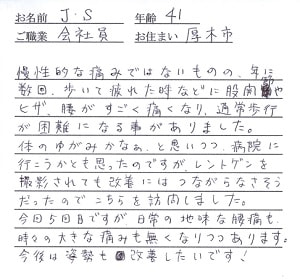 お名前 J.S 年齢 41
ご職業 会社員 お住まい 厚木市
慢性的な痛みではないものの、年に
数回、歩いて疲れた時などに股関節や
ヒザ、腰がすごく痛くなり、通常歩行
が困難になる事がありました。
体のゆがみかなぁ、と思いつつ、病院に
行こうかとも思ったのですが、レントゲンを
撮影されても改善にはつながらなさそう
だったのでこちらを訪問しました。
今回5回目ですが日常の地味な腰痛も、
時々の大きな痛みも無くなりつつあります。
今後は姿勢も改善したいです!